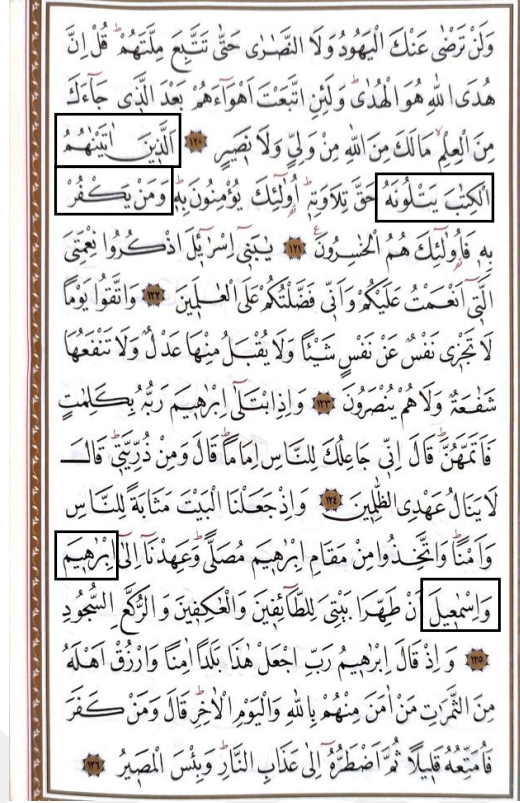 وَلَنْ تَرْضٰى عَنْكَ الْيَهُودُ وَلَا النَّصَارٰى حَتّٰى تَتَّبِعَ مِلَّتَهُمْ قُلْ اِنَّ
هُدَى اللهِ هُوَ الْهُدٰى وَلَئِنِ اتَّبَعْتَ اَهْوَٓاءَهُمْ بَعْدَ الَّذِي جَٓاءَكَ
مِنَ الْعِلْمِ مَالَكَ مِنَ اللهِ مِنْ وَلِيٍّ وَلَا نَصِيرٍ ﴿١٢٠﴾ اَلَّذِينَ اٰتَيْنٰهُمُ
الْكِتٰبَ يَتْلُونَهُ حَقَّ تِلَاوَتِهٖ اُو۬لٰٓئِكَ يُؤْمِنُونَ بِهٖ وَمَنْ يَكْفُرْ
بِهٖ فَاُو۬لٰٓئِكَ هُمُ الْخٰسِرُونَ ﴿١٢١﴾ يٰبَنِٓي اِسْرَٓائِلَ اذْكُرُوا نِعْمَتِيَ
الَّتِٓي اَنْعَمْتُ عَلَيْكُمْ وَاَنِّي فَضَّلْتُكُمْ عَلَى الْعٰلَمِينَ ﴿١٢٢﴾ وَاتَّقُوا يَوْمًا
لَا تَجْزِي نَفْسٌ عَنْ نَفْسٍ شَيْئًا وَلَا يُقْبَلُ مِنْهَا عَدْلٌ وَلَا تَنْفَعُهَا
شَفَاعَةٌ وَلَا هُمْ يُنْصَرُونَ ﴿١٢٣﴾ وَاِذِ ابْتَلٰٓى اِبْرٰهِيمَ رَبُّهُ بِكَلِمَاتٍ
فَاَتَمَّهُنَّ قَالَ اِنِّي جَاعِلُكَ لِلنَّاسِ اِمَامًا قَالَ وَمِنْ ذُرِّيَّتِي قَالَ
لَا يَنَالُ عَهْدِي الظَّالِمِينَ ﴿١٢٤﴾ وَاِذْ جَعَلْنَا الْبَيْتَ مَثَابَةً لِلنَّاسِ
وَاَمْنًا وَاتَّخِذُوا مِنْ مَقَامِ اِبْرٰهِيمَ مُصَلًّى وَعَهِدْنَٓا اِلٰٓى اِبْرٰهِيمَ
وَاِسْمٰعِيلَ اَنْ طَهِّرَا بَيْتِيَ لِلطَّٓائِفِينَ وَالْعَاكِفِينَ وَالرُّكَّعِ السُّجُودِ
﴿١٢٥﴾ وَاِذْ قَالَ اِبْرٰهِيمُ رَبِّ اجْعَلْ هٰذَا بَلَدًا اٰمِنًا وَارْزُقْ اَهْلَهُ
مِنَ الثَّمَرَاتِ مَنْ اٰمَنَ مِنْهُمْ بِاللهِ وَالْيَوْمِ الْاٰخِرِ قَالَ وَمَنْ كَفَرَ
فَاُمَتِّعُهُ قَلِيلًا ثُمَّ اَضْطَرُّهُٓ اِلٰى عَذَابِ النَّارِ وَبِئْسَ الْمَصِيرُ ﴿١٢٦﴾